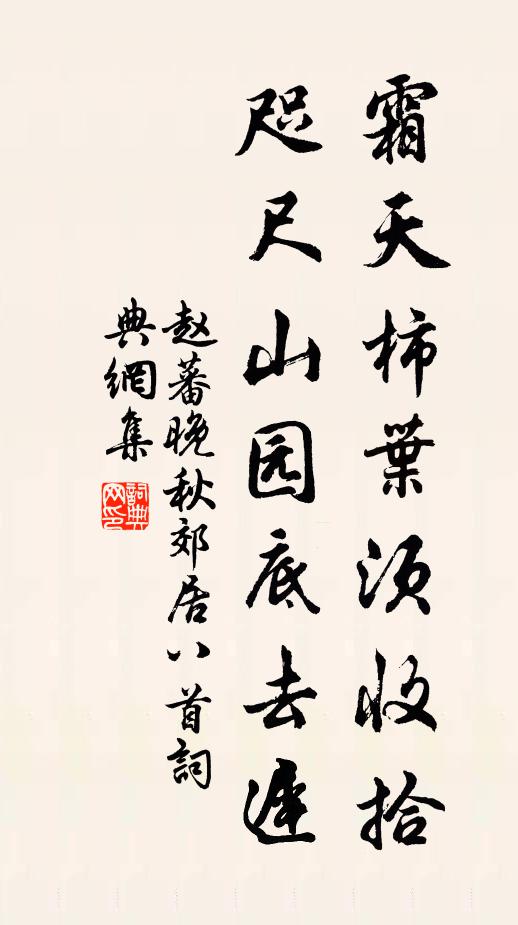 霜天柿葉須收拾
咫尺山园底去遲
赵蕃晚秋郊居八首詞
典網集
詞典
网印